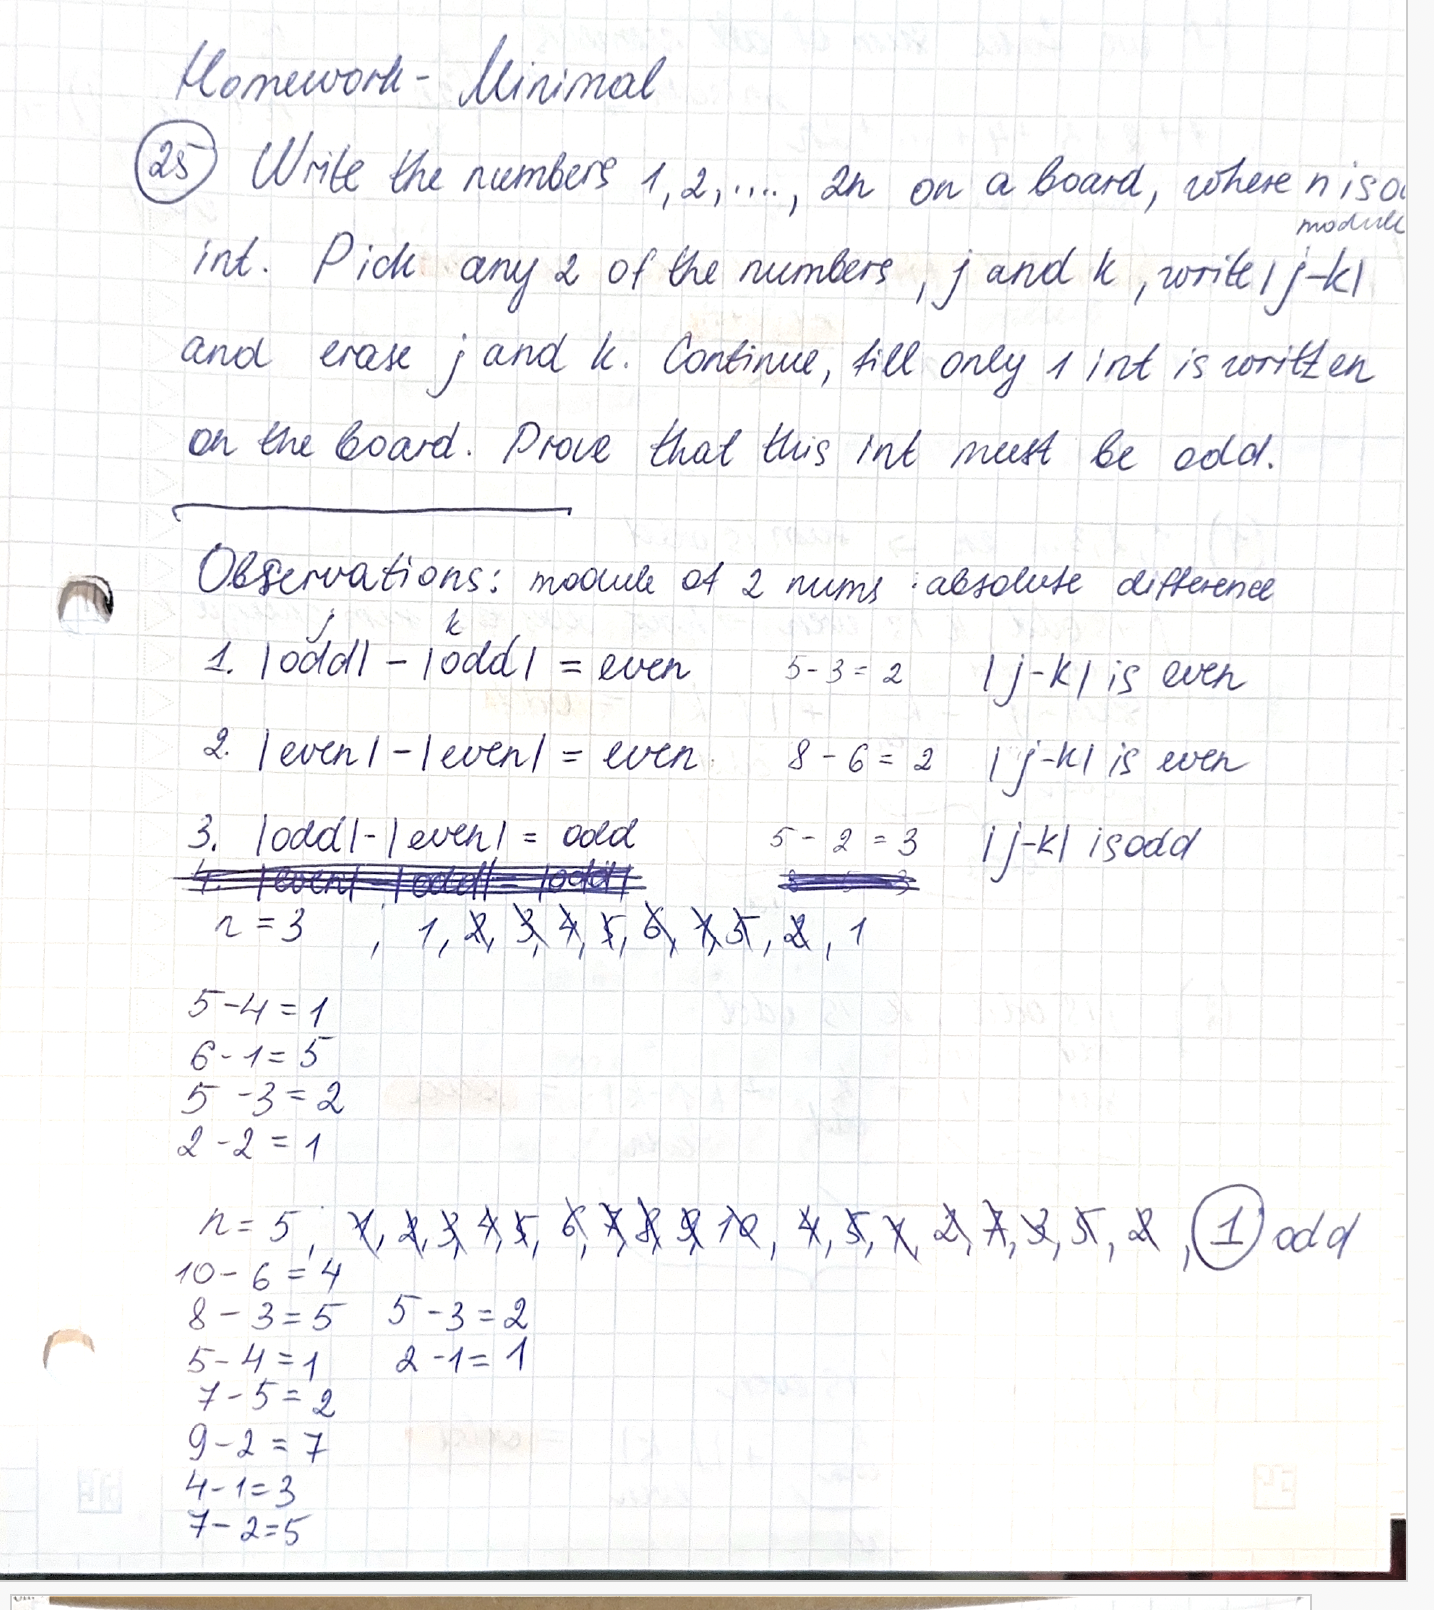 Homework - Minimal
25 Write the numbers 1, 2, ...., 2n on a board, where n is
module
int. Pick any 2 of the numbers, j and k, write |j-k|
and erase j and k. Continue, till only 1 int is written
on the board. Prove that this int must be odd.
Observations: module of 2 nums : absolute difference
j k
1. |odd| - |odd| = even 5-3=2 |j-k| is even
2. |even| - |even| = even 8-6=2 |j-k| is even
3. |odd| - |even| = odd 5-2=3 |j-k| is odd
4. |even| - |odd| = |odd|
n=3 , 1, 2, 3, 4, 5, 6, 1, 5, 2, 1
5-4=1
6-1=5
5-3=2
2-2=1
n=5; 1, 2, 3, 4, 5, 6, 7, 8, 9, 10, 4, 5, 1, 2, 7, 3, 5, 2, 1 odd
10-6=4
8-3=5 5-3=2
5-4=1 2-1=1
7-5=2
9-2=7
4-1=3
7-2=5